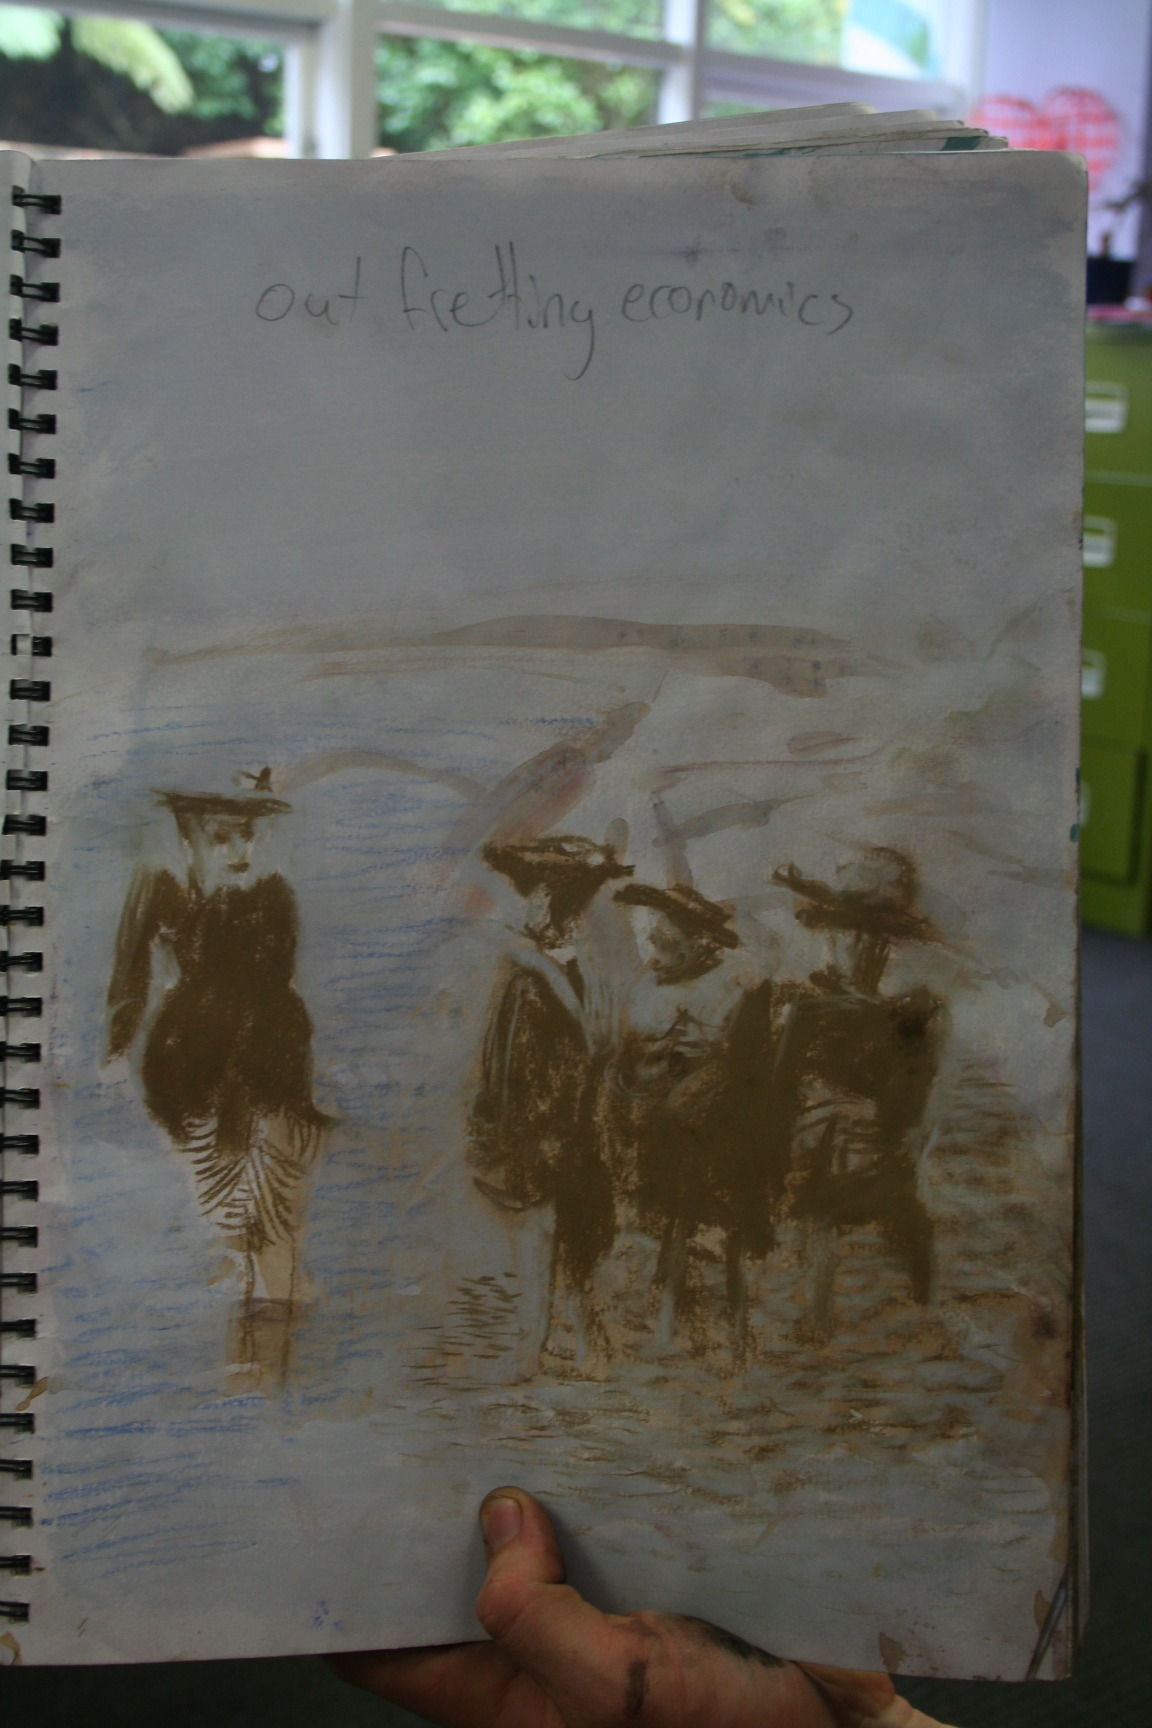 out fretting economics